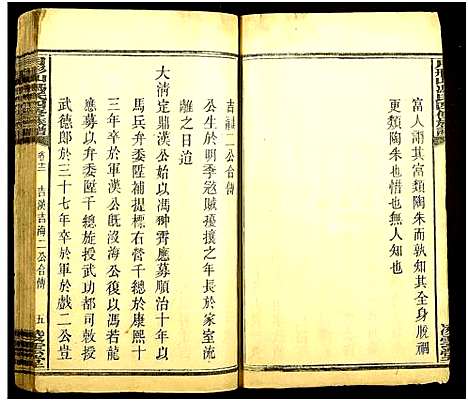 富人謂其富類陶朱而孰知其全身脫禍
更類陶朱也惜也無人知也
吉漢二公合傳
公生於明季愍賊痝攘之年長於家室流
離之日迨
大清定鼎漢公始以馮翀霄應募順治十年以
馬兵弁委陞補提標右營千總於康熙十
三年卒於軍漢公既沒海公復以馮若龍
應募以弁委陞千總旋授武功都司敕授
武德郎於三十七年卒於軍於戲二公豈
卷十二
吉漢吉海二公合傳
五